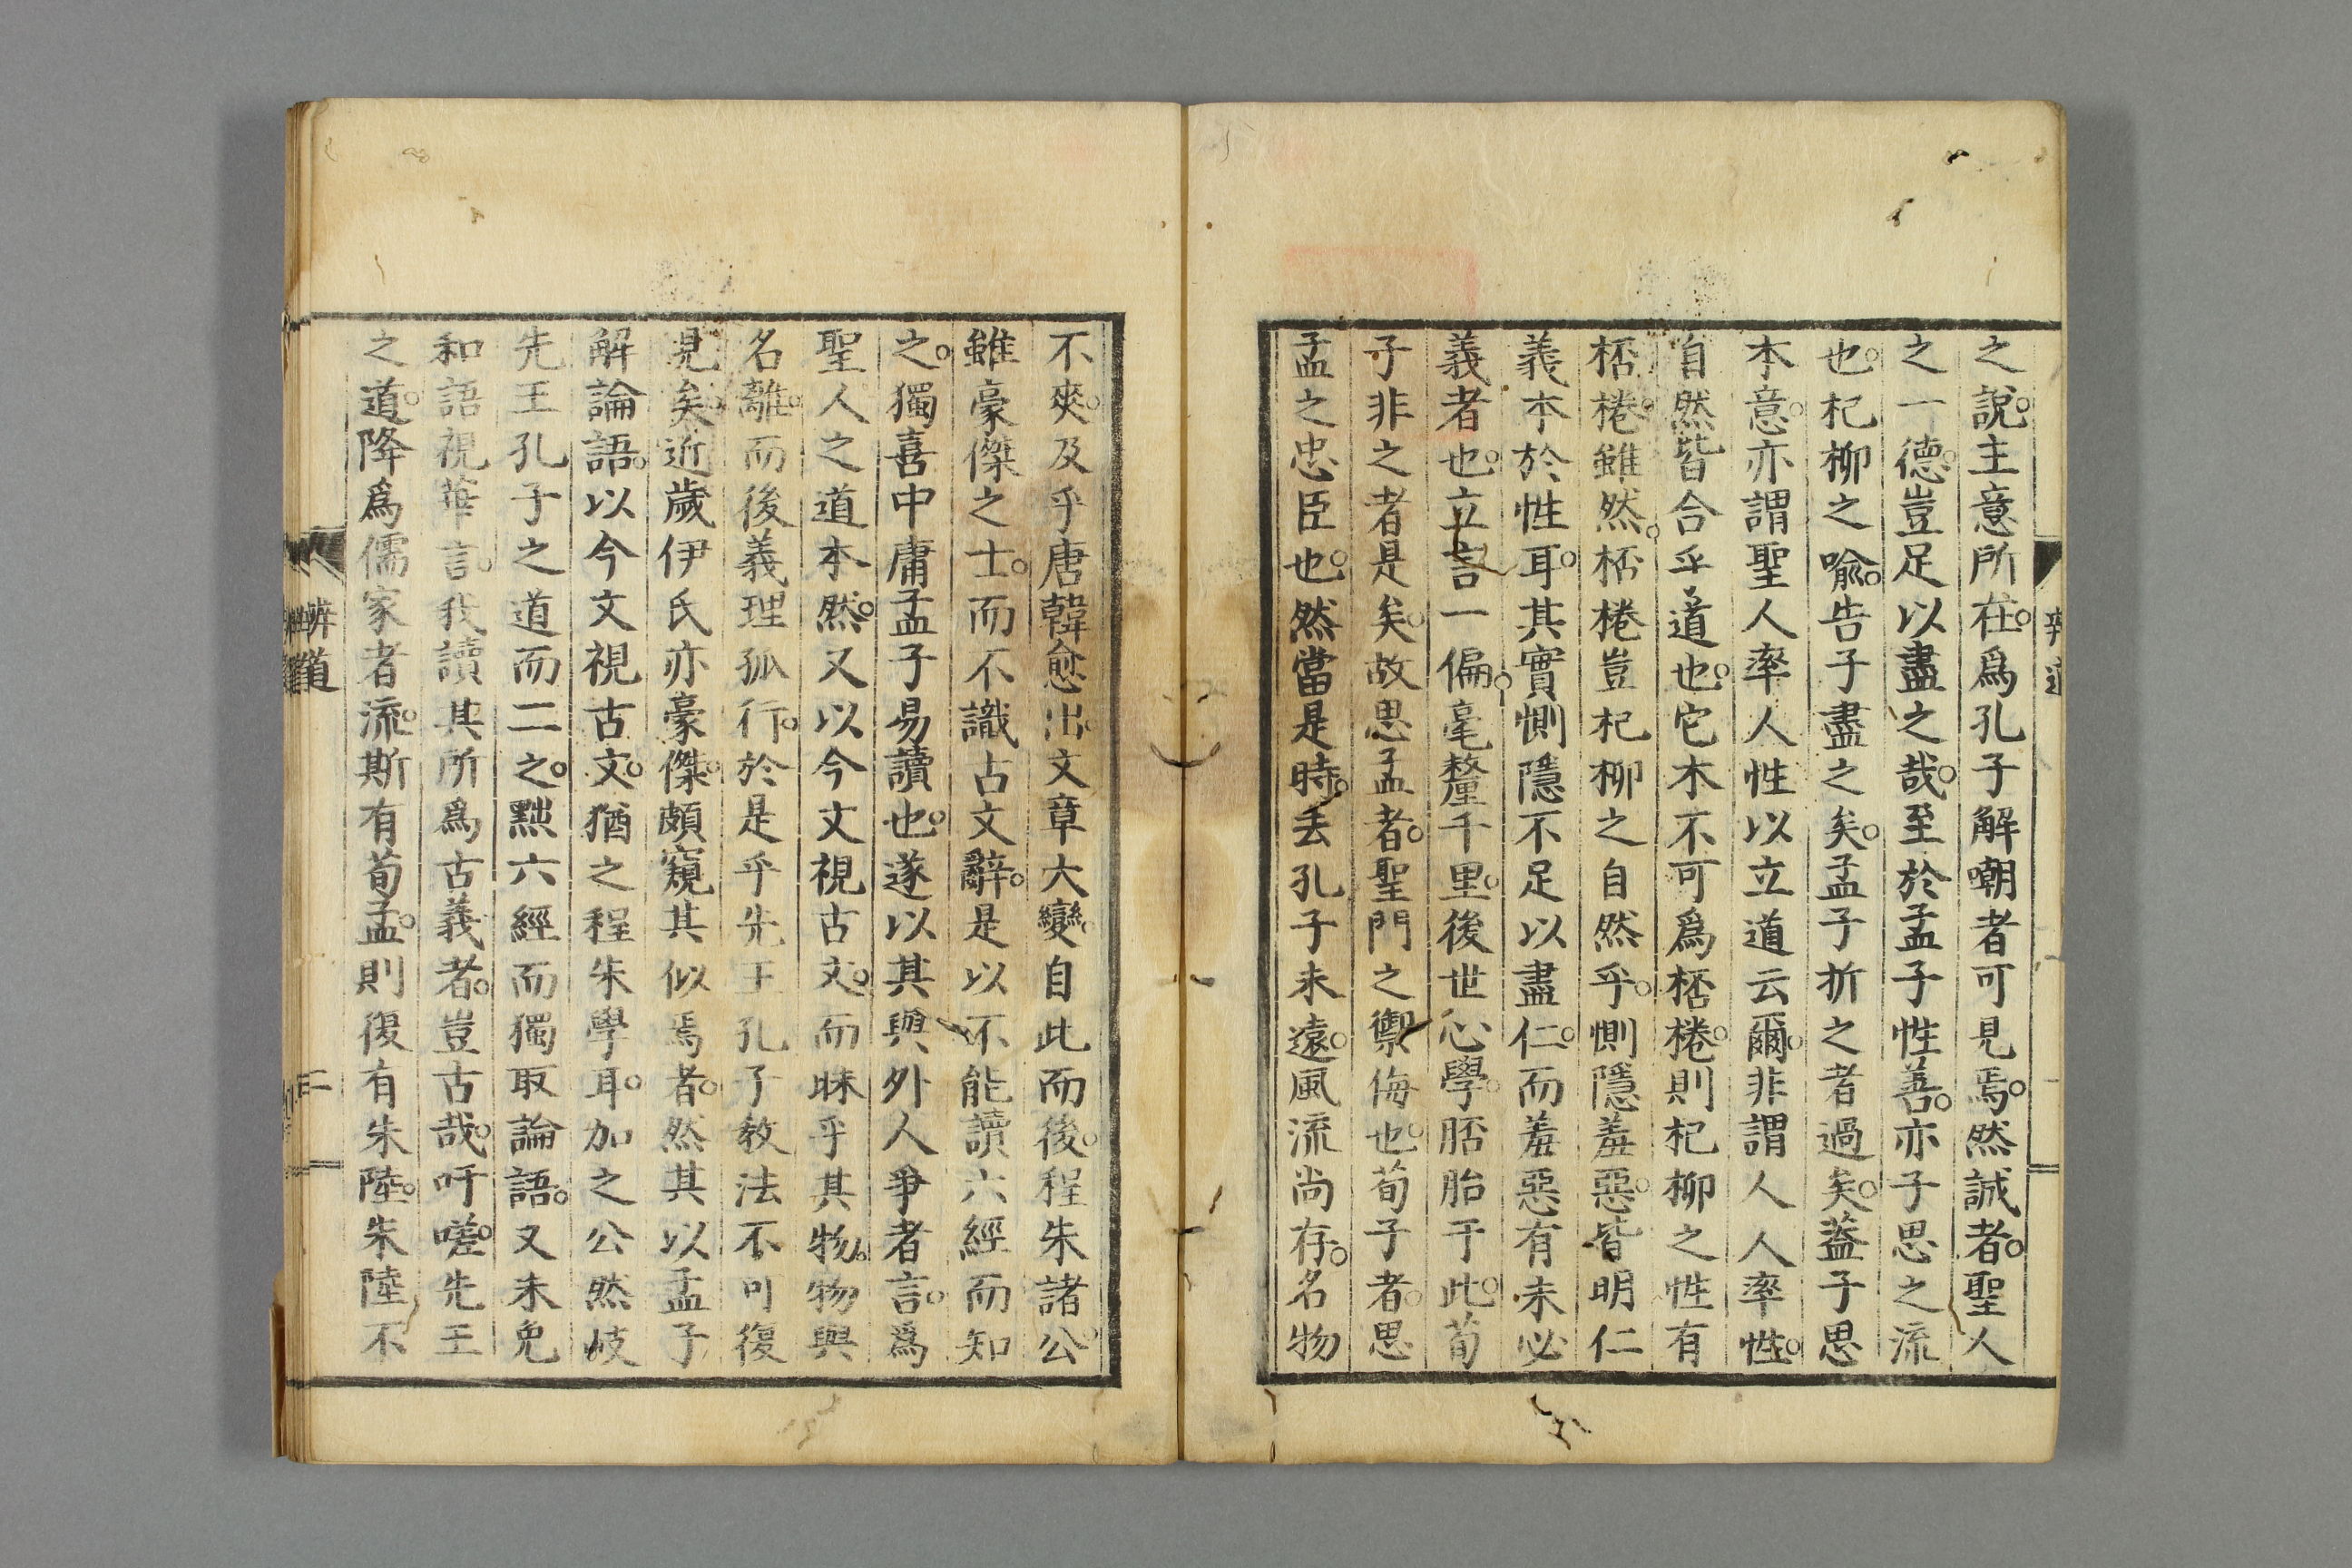 之說。主意所在。爲孔子解嘲者可見焉。然誠者。聖人
之一德。豈足以盡之哉。至於孟子性善。亦子思之流
也。杞柳之喩。告子盡之矣。孟子折之者過矣。蓋子思
本意。亦謂聖人率人性以立道云爾。非謂人人率性。
自然皆合乎道也。它木不可爲桮棬。則杞柳之性有
桮棬。雖然。桮棬豈杞柳之自然乎。惻隱羞惡。皆明仁
義本於性耳。其實惻隱不足以盡仁。而羞惡有未必
義者也。立言一偏。毫釐千里。後世心學。胚胎于此。荀
子非之者是矣。故思孟者。聖門之禦侮也。荀子者。思
孟之忠臣也。然當是時。去孔子未遠。風流尚存。名物
不爽。及乎唐韓愈出。文章大變。自此而後。程朱諸公。
雖豪傑之士。而不識古文辭。是以不能讀六經而知
之。獨喜中庸孟子易讀也。遂以其與外人爭者言。爲
聖人之道本然。又以今文視古文。而昧乎其物。物與
名離。而後義理孤行。於是乎先王孔子教法不可復
見矣。近歲伊氏亦豪傑。頗窺其似焉者。然其以孟子
解論語。以今文視古文。猶之程朱學耳。加之公然岐
先王孔子之道而二之。黜六經而獨取論語。又未免
和語視華言。我讀其所爲古義者。豈古哉。吁嗟。先王
之道。降爲儒家者流。斯有荀孟。則復有朱陸。朱陸不
辨道 二